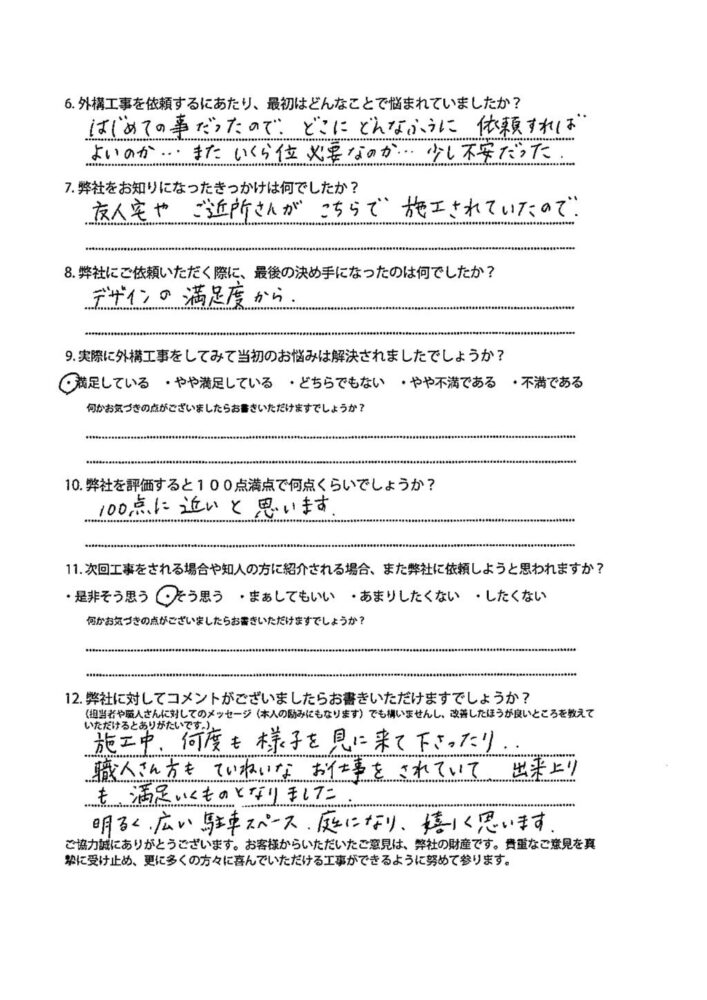 6. 外構工事を依頼するにあたり、最初はどんなことで悩まれていましたか？
はじめての事だったので、どこに どんなふうに 依頼すれば
よいのか… また いくら位 必要なのか… 少し不安だった.
7. 弊社をお知りになったきっかけは何でしたか？
友人宅や ご近所さんが こちらで 施工されていたので.
8. 弊社にご依頼いただく際に、最後の決め手になったのは何でしたか？
デザインの 満足度から.
9. 実際に外構工事をしてみて当初のお悩みは解決されましたでしょうか？
・満足している ・やや満足している ・どちらでもない ・やや不満である ・不満である
何かお気づきの点がございましたらお書きいただけますでしょうか？
10. 弊社を評価すると１００点満点で何点くらいでしょうか？
100点に 近いと 思います.
11. 次回工事をされる場合や知人の方に紹介される場合、また弊社に依頼しようと思われますか？
・是非そう思う ・そう思う ・まぁしてもいい ・あまりしたくない ・したくない
何かお気づきの点がございましたらお書きいただけますでしょうか？
12. 弊社に対してコメントがございましたらお書きいただけますでしょうか？
（担当者や職人さんに対してのメッセージ（本人の励みにもなります）でも構いませんし、改善したほうが良いところを教えて
いただけるとありがたいです。）
施工中、何度も 様子を 見に来て 下さったり..
職人さん方も ていねいな お仕事を されていて 出来上り
も、満足いくものとなりました.
明るく、広い 駐車スペース、庭になり、嬉しく思います.
ご協力誠にありがとうございます。お客様からいただいたご意見は、弊社の財産です。貴重なご意見を真
摯に受け止め、更に多くの方々に喜んでいただける工事ができるように努めて参ります。